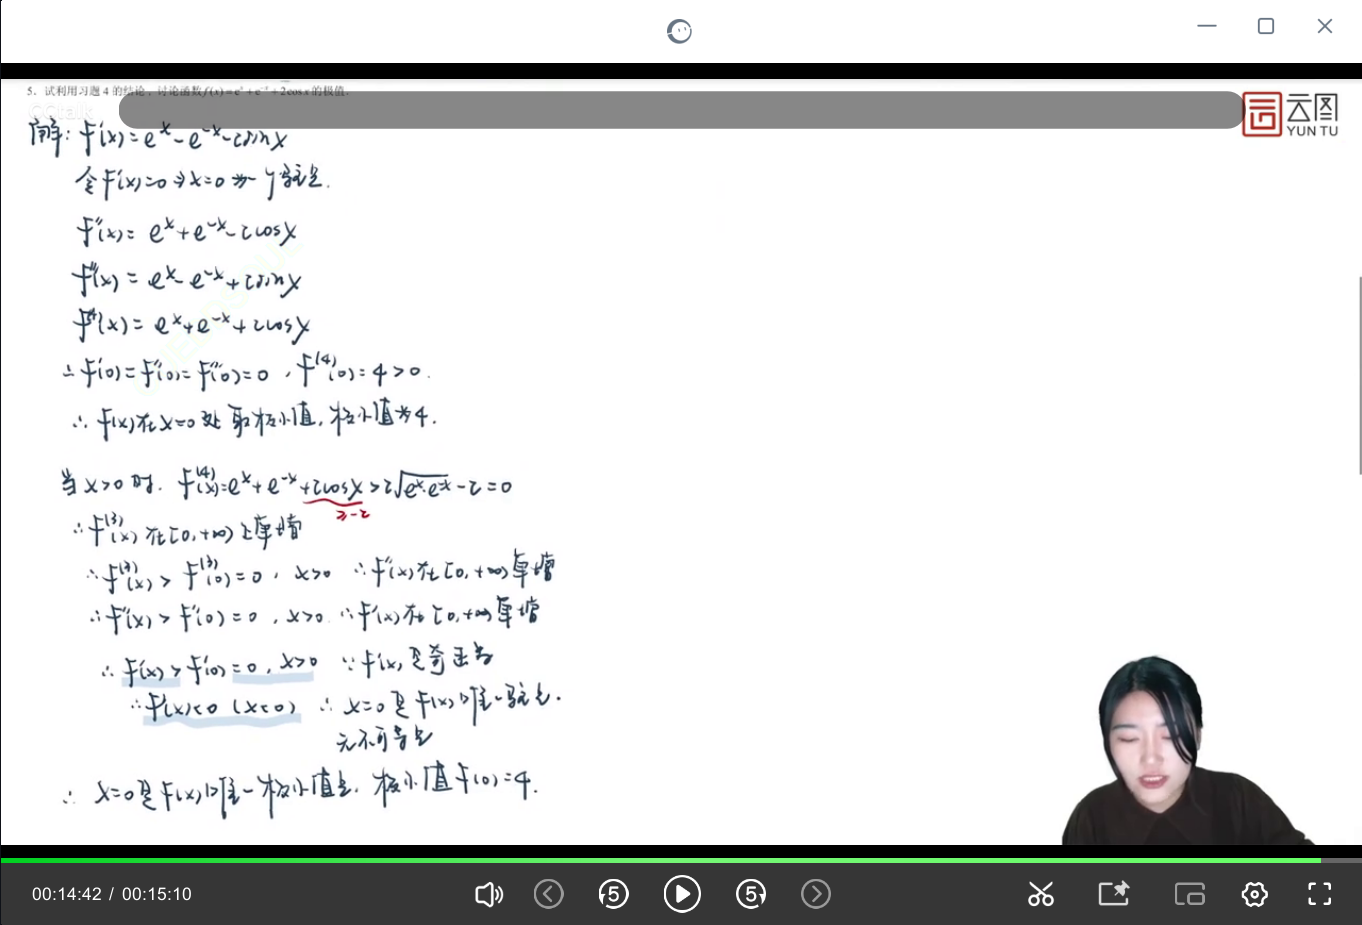 5. 试利用习题 4 的结论，讨论函数f(x)=eˣ+e⁻ˣ+2cos x的极值.
CCtalk
云图
YUN TU
解: f'(x)=eˣ-e⁻ˣ-2sinx
令f'(x)=0⇒x=0为一个驻点.
f''(x)=eˣ+e⁻ˣ-2cosx
f'''(x)=eˣ-e⁻ˣ+2sinx
f⁗(x)=eˣ+e⁻ˣ+2cosx
∴f'(0)=f''(0)=f'''(0)=0,f⁽⁴⁾(0)=4>0.
∴f(x)在x=0处取极小值,极小值为4.
当x>0时.f⁽⁴⁾(x)=eˣ+e⁻ˣ+2cosx>2√eˣ·e⁻ˣ-2=0
≥-2
∴f⁽³⁾(x)在[0,+∞)上单增
∴f⁽³⁾(x)>f⁽³⁾(0)=0,x>0 ∴f''(x)在[0,+∞)单增
∴f''(x)>f''(0)=0,x>0.∴f'(x)在[0,+∞)单增
∴f'(x)>f'(0)=0,x>0 ∵f'(x)是奇函数
∴f'(x)<0 (x<0) ∴x=0是f(x)的唯一驻点.
无不可导点
∴x=0是f(x)的唯一极小值点.极小值f(0)=4.
00:14:42 / 00:15:10
5
5